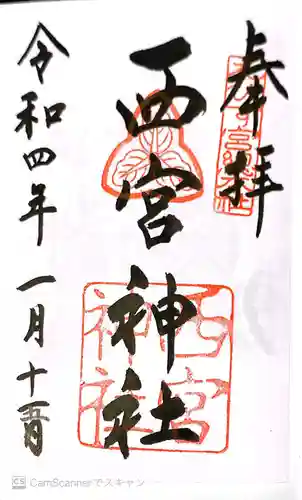 奉拝
西宮神社
令和四年 一月十五日
西宮
神社
CamScannerでスキャン